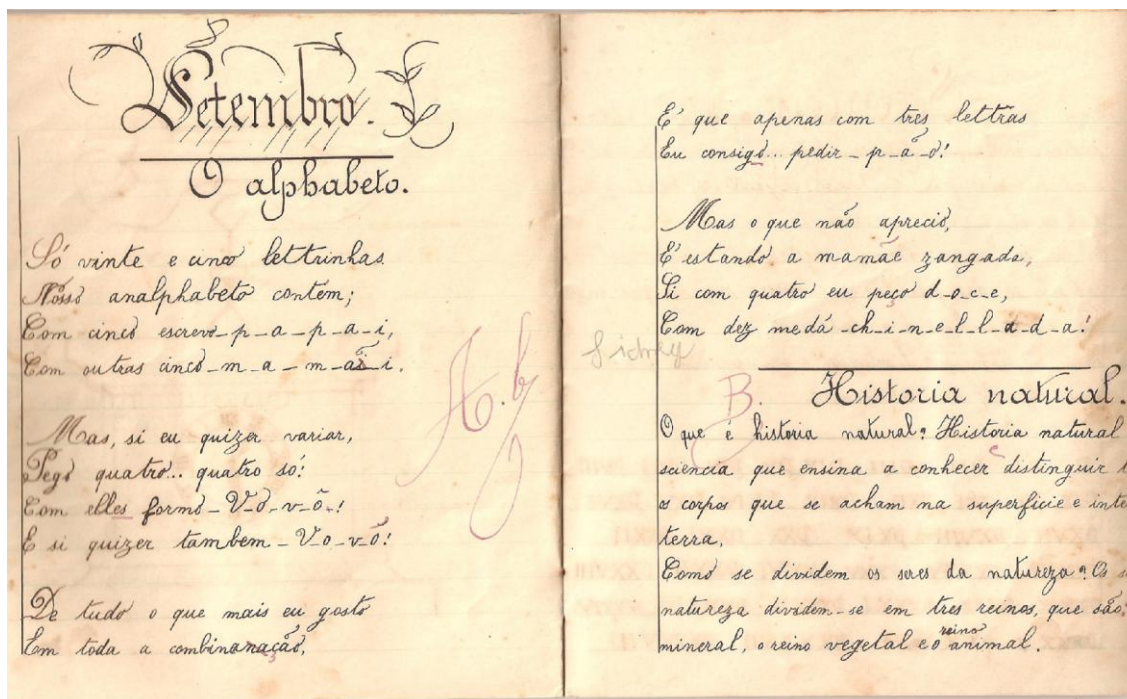 Setembro.
O alphabeto.
Só vinte e cinco lettrinhas
Nosso analphabeto contém;
Com cinco escrevo - p - a - p - a - i,
Com outras cinco - m - a - m - ã - i.
Mas, si eu quizer variar,
Pego quatro... quatro só!
Com elles formo - V - o - v - ô - !
E si quizer tambem - V - o - v - ó!
De tudo o que mais eu gosto
Em toda a combinaração,
E' que apenas com tres lettras
Eu consigo... pedir - p - ã - o!
Mas o que não aprecio,
E' estando a mamãe zangada,
Si com quatro eu peço d - o - c - e,
Com dez me dá - ch - i - n - e - l - l - a - d - a!
A. b
Sidney
B.
Historia natural.
O que é historia natural? Historia natural
sciencia que ensina a conhecer e distinguir
os corpos que se acham na superficie e inte
terra,
Como se dividem os seres da natureza? Os s
natureza dividem-se em tres reinos, que são:
mineral, o reino vegetal e o reino animal.